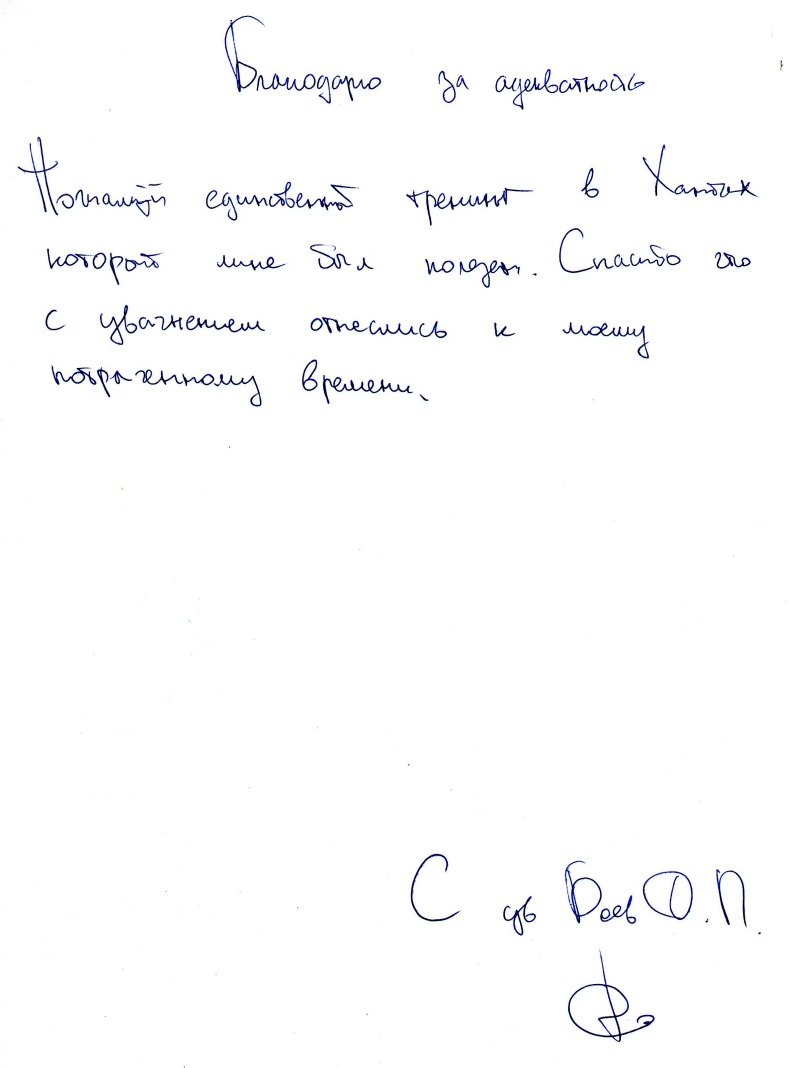 Благодарю за адекватность
Пожалуй единственный тренинг в Хантах
который мне был полезен. Спасибо что
с уважением отнеслись к моему
потраченному времени.
С ув Боев Д.П.